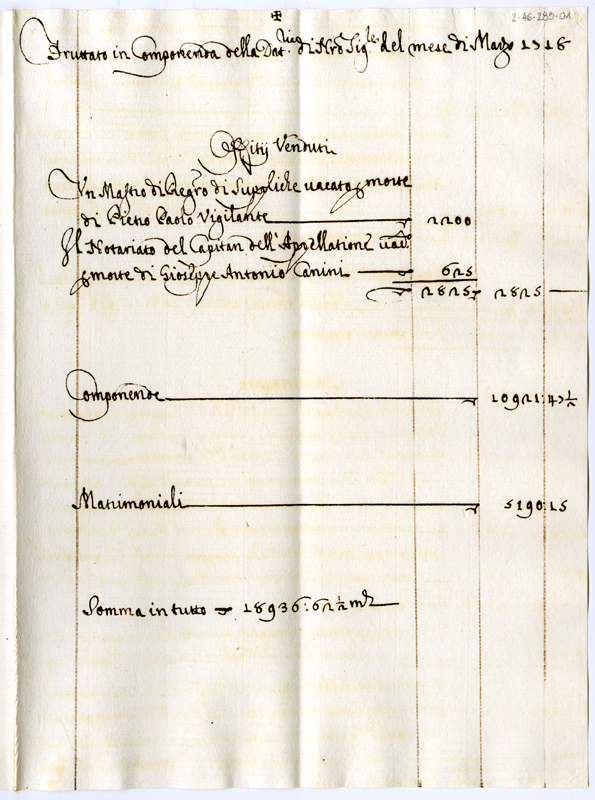 ✠
2-46-289-01
Fruttato in Componenda della Dat.ria di Nrõ Sig.re del mese di Marzo 1718
Offitij Venduti
Un Mastro di Regrõ di Suppliche vacato p morte
di Pietro Paolo Vigilante 2200
Il Notariato del Capitan. dell'Appellatione vaco
p morte di Gioseppe Antonio Canini 625
2825 2825
Componende 10921:47½
Matrimoniali 5190:15
Somma in tutto 18936:62½ mta